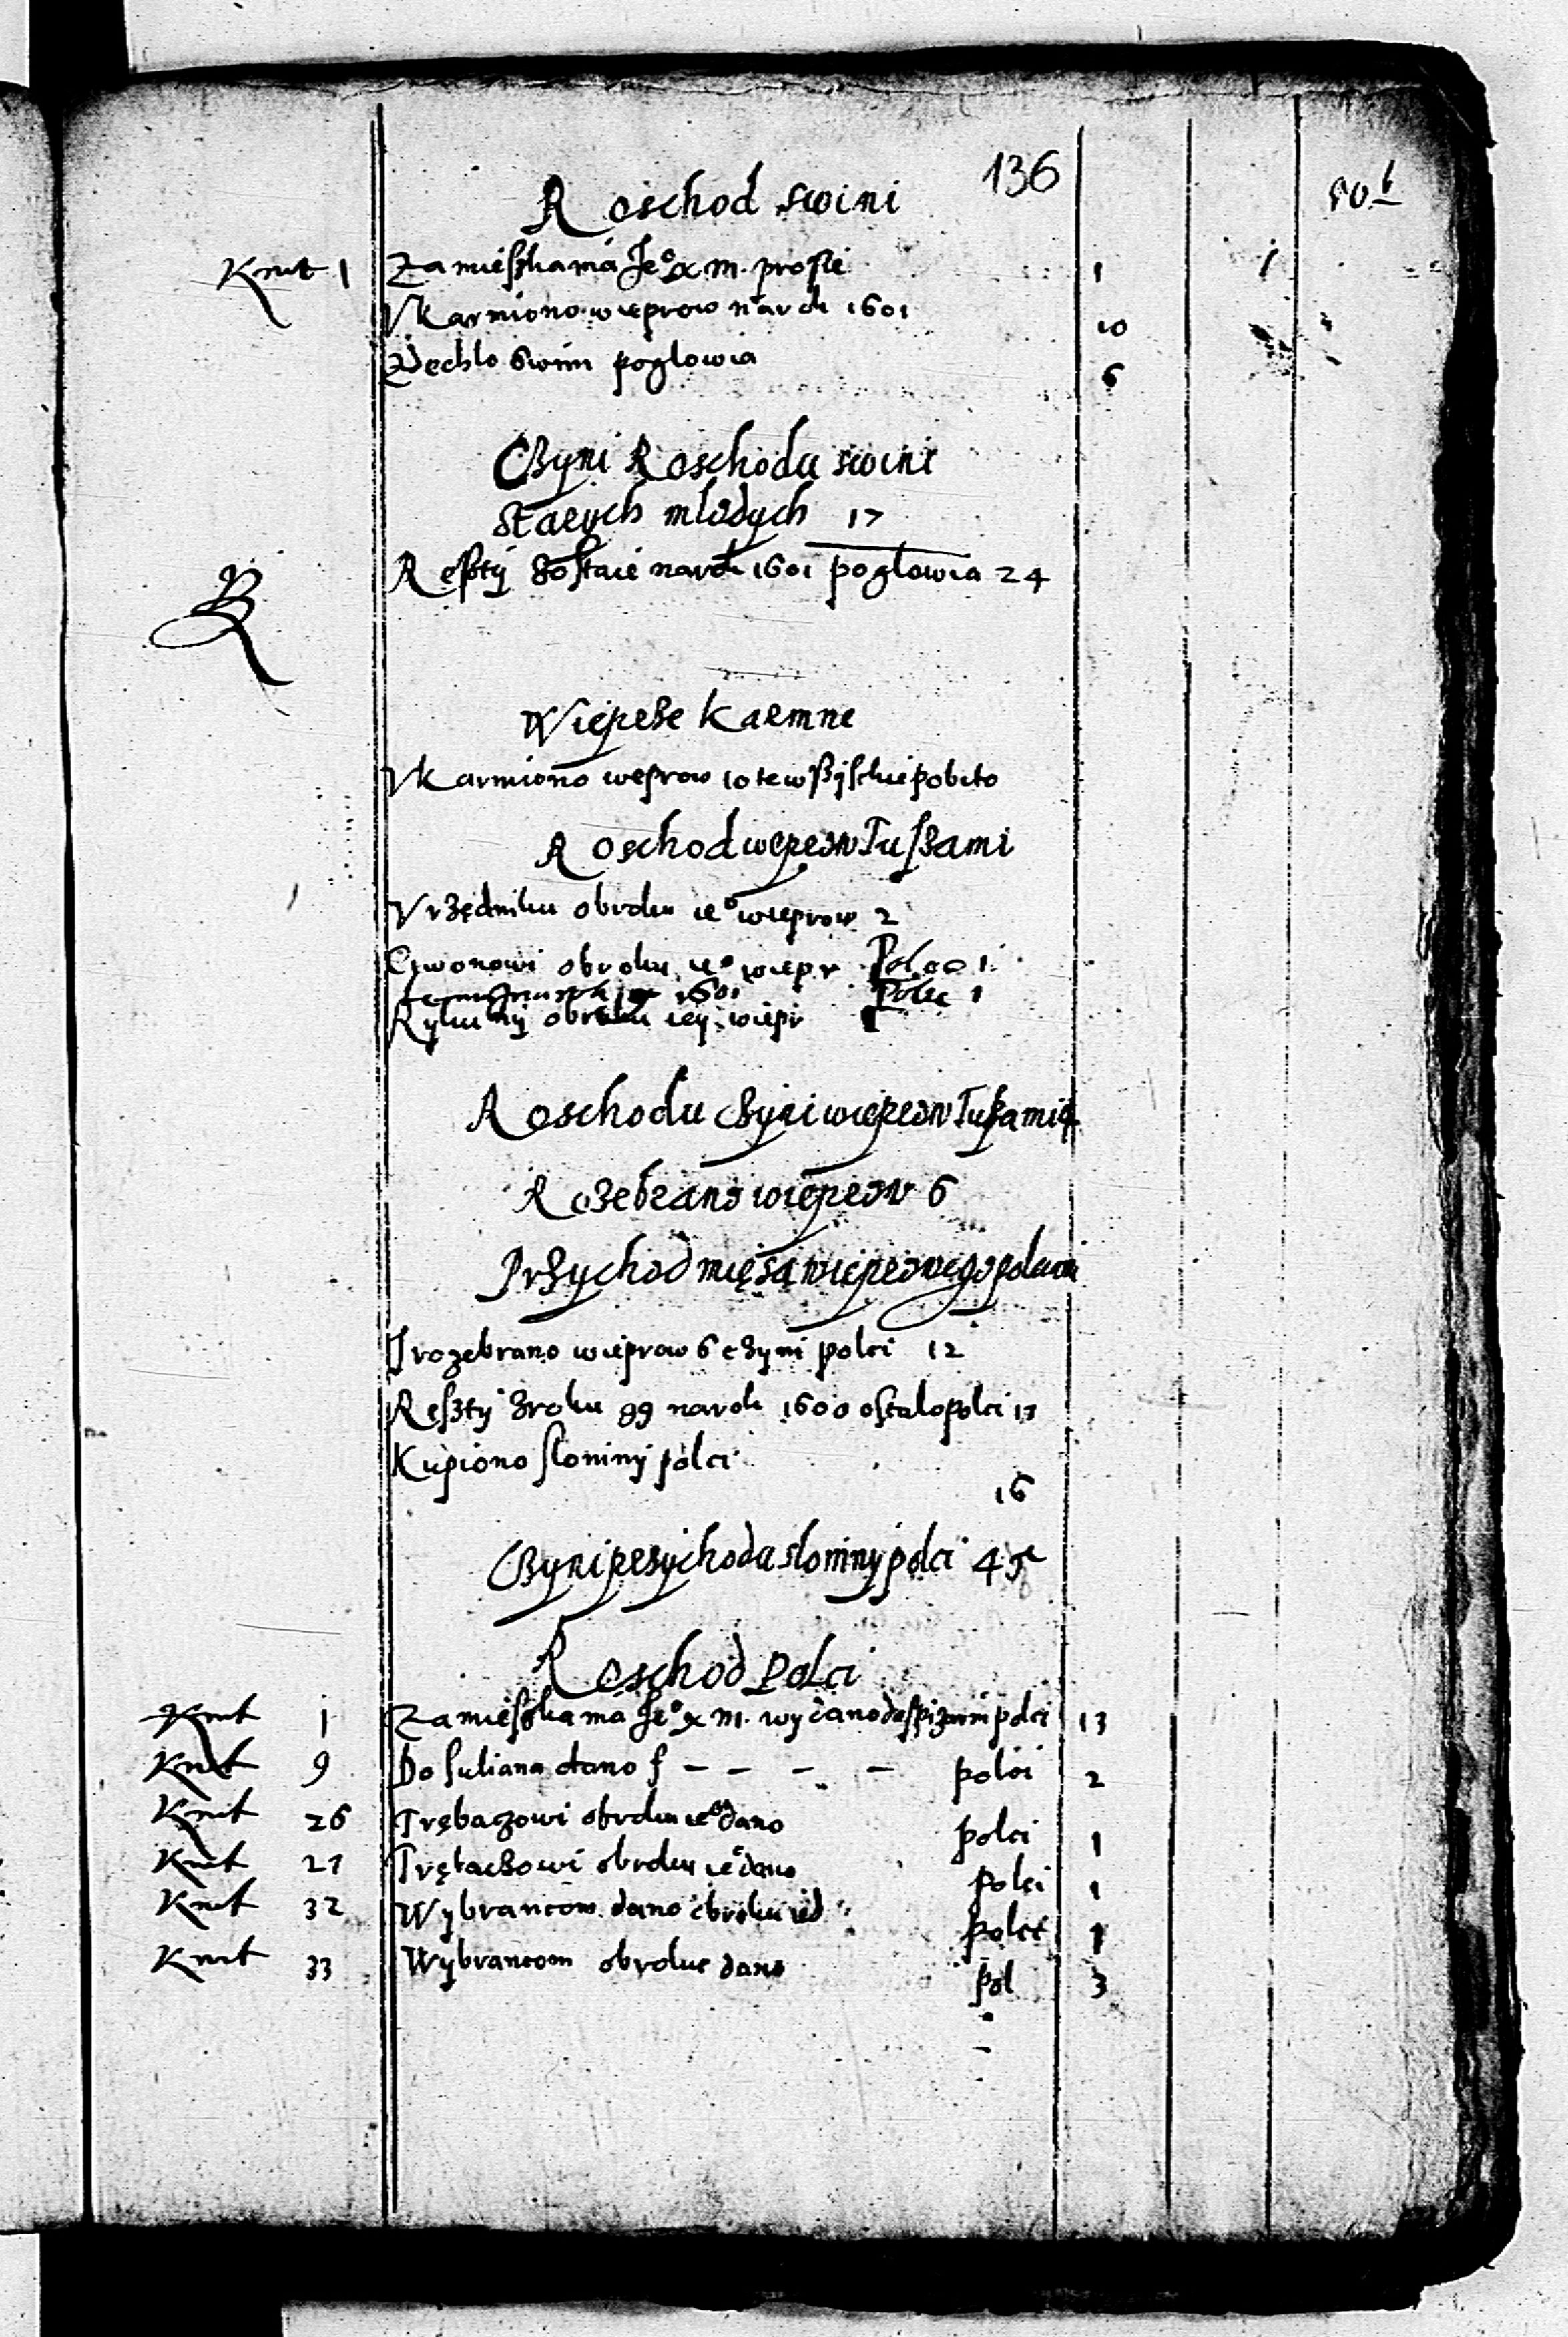 136
Roschod swini
Kwit 1 Za mieszkania Je° x m. prosie 1 1
Vkarmiono wieprow na rok 1601 10
Zdechło swini pogłowia 6
Czyni Roschodu swini
starych młodych 17
Reszty zostaie na rok 1601 pogłowia 24
Wieprze karmne
Vkarmiono weprow 10 te wszyskie pobito
Roschod weprow Tuszami
Vrzędniku obroku ie° wieprow 2
Ciwonowi obroku ie° wiepr Polec 1
1601 Polec 1
Rykuny obroku iey wiepr
Roschodu czyni wieprow Tuszami 4
Rozebrano wieprow 6
Przychod mięsa wieprowego polciami
Jrozebrano wieprow 6 czyni polci 12
Reszty z roku 99 na rok 1600 ostalo polci 17
Kupiono słoniny polci
16
Czyni przychodu słoniny polci 45
Roschod Polci
Kwit 1 Za mieszkania Je° x m. wydano do spizarni polci 13
Kwit 9 Do Juliana dano f – – – – polci 2
Kwit 26 Trębaczowi obroku ie° dano polci 1
Kwit 27 Trębaczowi obroku ie° dano polci 1
Kwit 32 Wybrancom dano obroku polci 1
Kwit 33 Wybrancom obroku dano pol 3